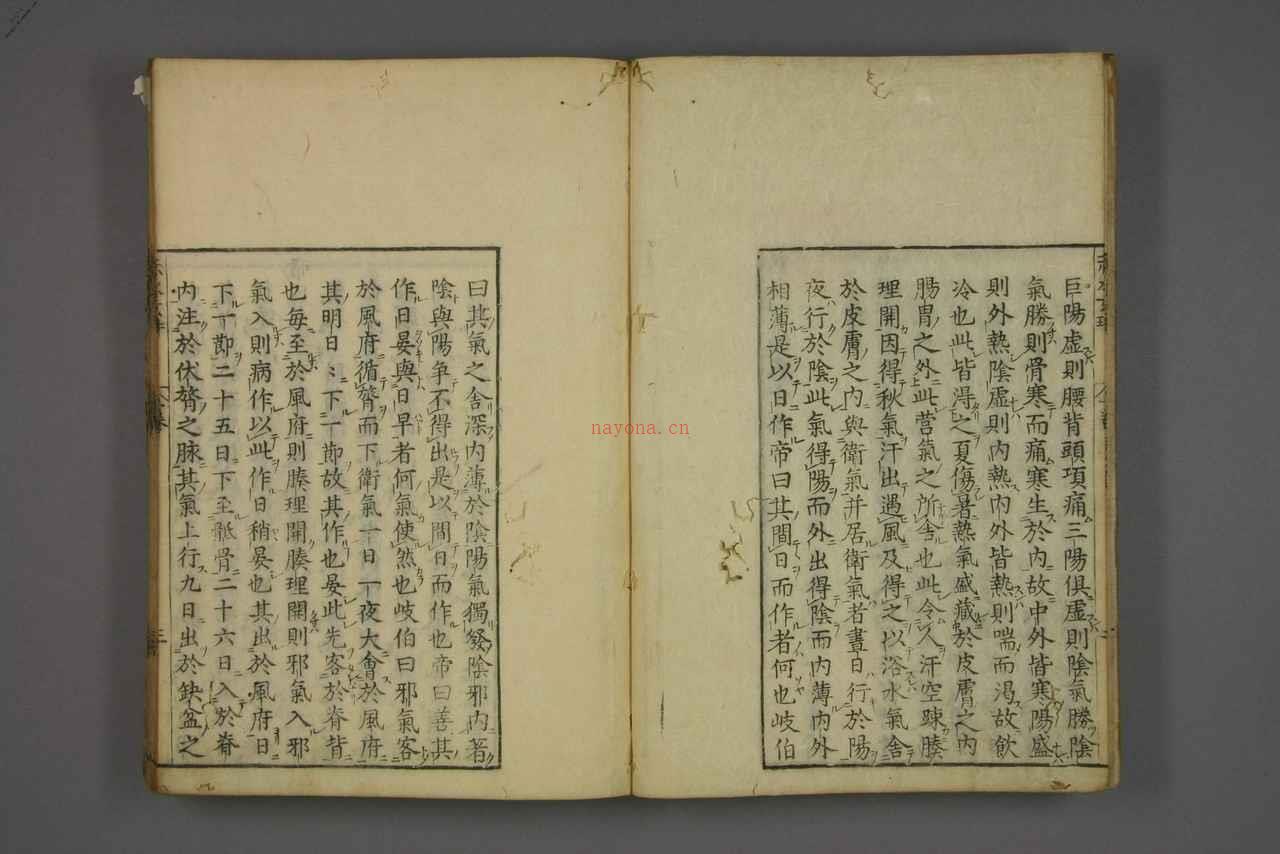 巨陽虛則腰背頭項痛三陽俱虛則陰氣勝陰
氣勝則骨寒而痛寒生於內故中外皆寒陽盛
則外熱陰虛則內熱內外皆熱則喘而渴故飲
冷也此皆得之夏傷暑熱氣盛藏於皮膚之內
腸胃之外此營氣之所舍也此令人汗空踈腠
理開因得秋氣汗出遇風及得之以浴水氣舍
於皮膚之內與衛氣并居衛氣者晝日行於陽
夜行於陰此氣得陽而外出得陰而內薄內外
相薄是以日作帝曰其間日而作者何也岐伯
曰其氣之舍深內薄於陰陽氣獨發陰邪內著
陰與陽爭不得出是以間日而作也帝曰善其
作日晏與日早者何氣使然也岐伯曰邪氣客
於風府循膂而下衛氣一日一夜大會於風府
其明日〻下一節故其作也晏此先客於脊背
也每至於風府則腠理開腠理開則邪氣入邪
氣入則病作以此作日稍晏也其出於風府日
下一節二十五日下至骶骨二十六日入於脊
內注於伏膂之脉其氣上行九日出於缺盆之
nayona.cn